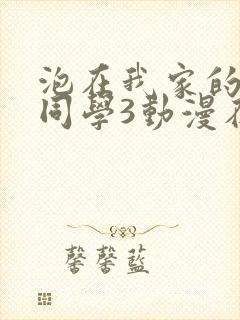 泡在我家的
同學3動漫在
馨馨藍